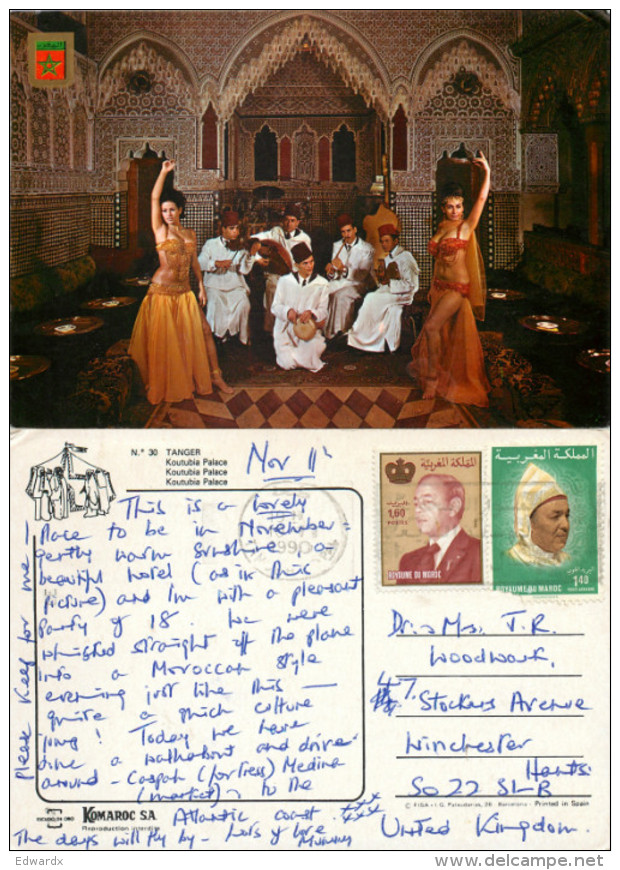 N.º 30 TANGER
Koutubia Palace
Koutubia Palace
Koutubia Palace
Nov 11th
This is a lovely
place to be in November =
gently warm sunshine - a
beautiful hotel (as in this
picture) and I'm with a pleasant
party of 18. We were
whisked straight off the plane
into a Moroccan style
evening just like this —
quite a quick culture
jump! Today we have
done a walkabout and drive-
around - Casbah (fortress) Medina
(market), to the
Atlantic coast. xxxx
The days will fly by - lots of love
Mummy
Please keep for me!
المملكة المغربية
1,60
POSTES
ROYAUME DU MAROC
المملكة المغربية
ROYAUME DU MAROC
1,40
Dr. & Mrs. T.R.
Woodwork,
47. Stockers Avenue
Winchester
Hants.
SO22 5LB
United Kingdom.
KOMAROC S.A.
Reproduction interdite
© FISA - I.G. Palaudarias, 26 - Barcelona - Printed in Spain
Edwardx
www.delcampe.net